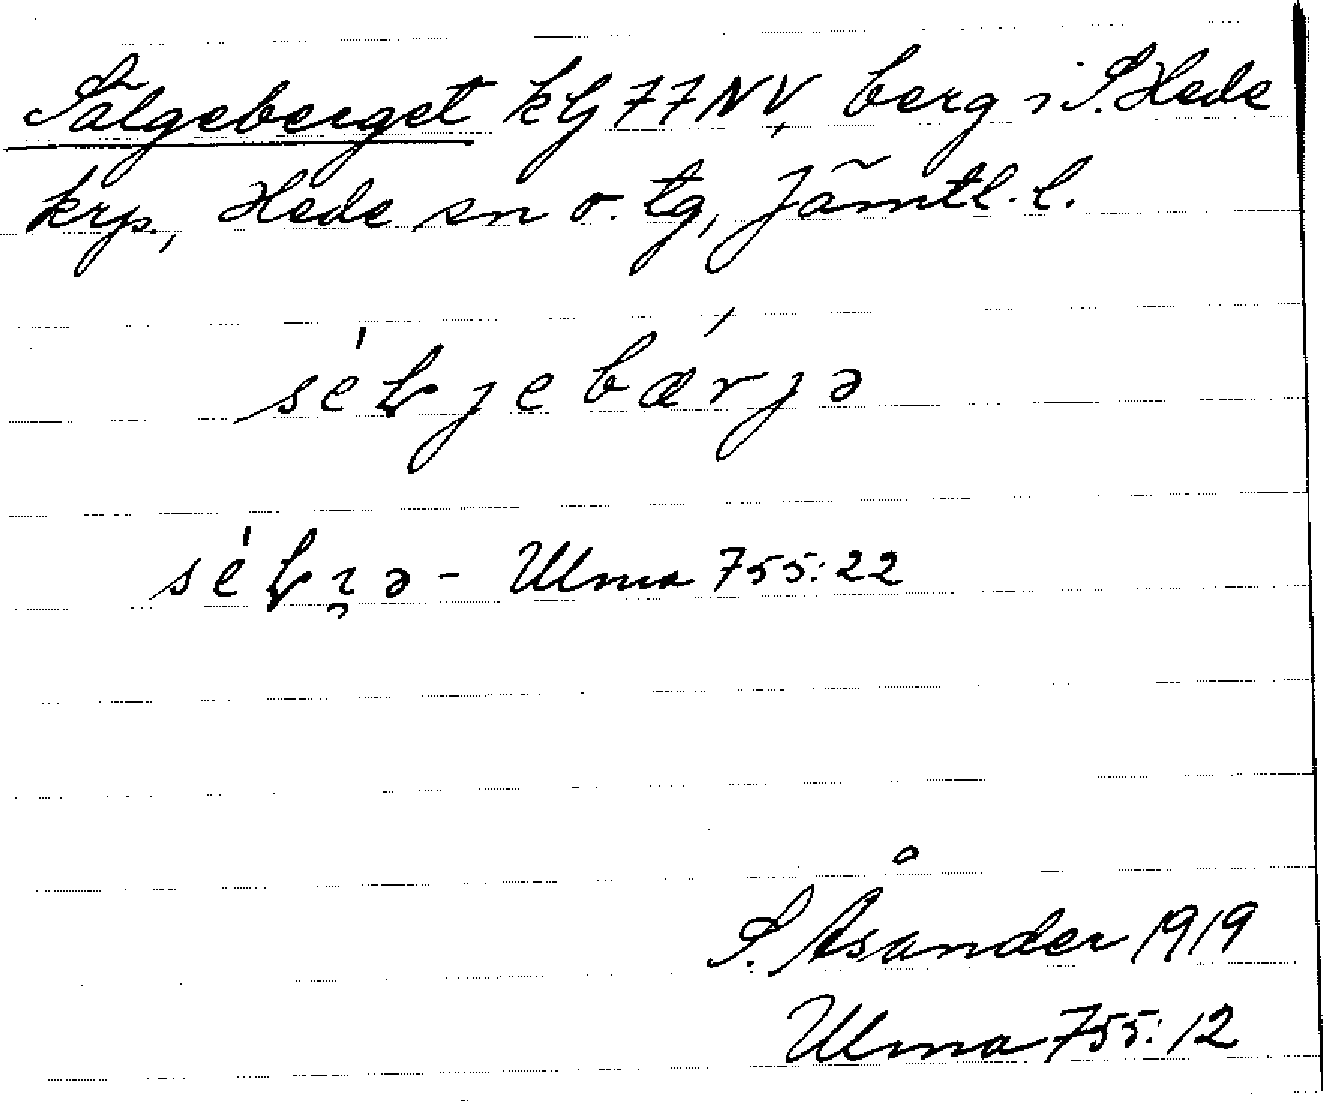 Sälgeberget kG77NV, berg i S. Hede
krp., Hede sn o. tg, Jämtl. l.
Ulma 755:22
S. Åsander 1919
Ulma 755:12